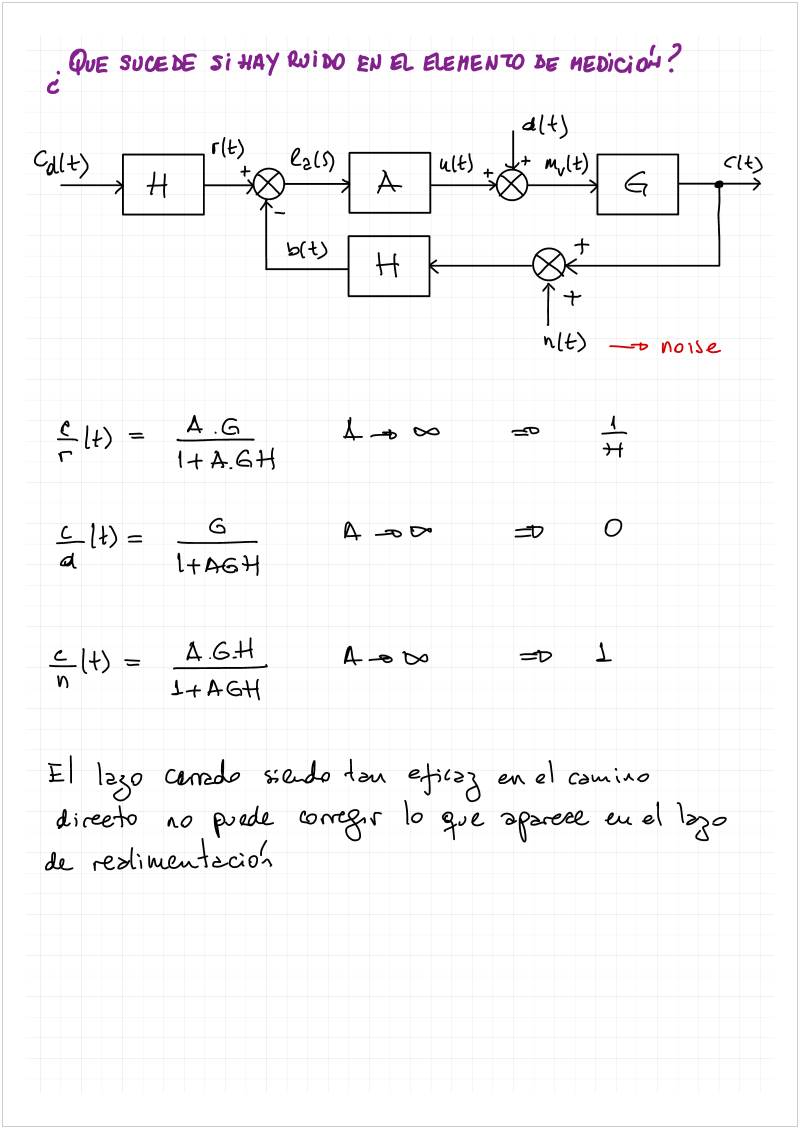 ¿QUE SUCEDE SI HAY RUIDO EN EL ELEMENTO DE MEDICIÓN?
d(t)
Cd(t) H r(t) + ea(s) A u(t) + + mv(t) G c(t)
-
b(t) H +
+
n(t) → noise
c/r (t) = A.G / 1+A.GH A → ∞ ⇒ 1/H
c/d (t) = G / 1+AGH A → ∞ ⇒ 0
c/n (t) = A.G.H / 1+AGH A → ∞ ⇒ 1
El lazo cerrado siendo tan eficaz en el camino
directo no puede corregir lo que aparece en el lazo
de realimentación